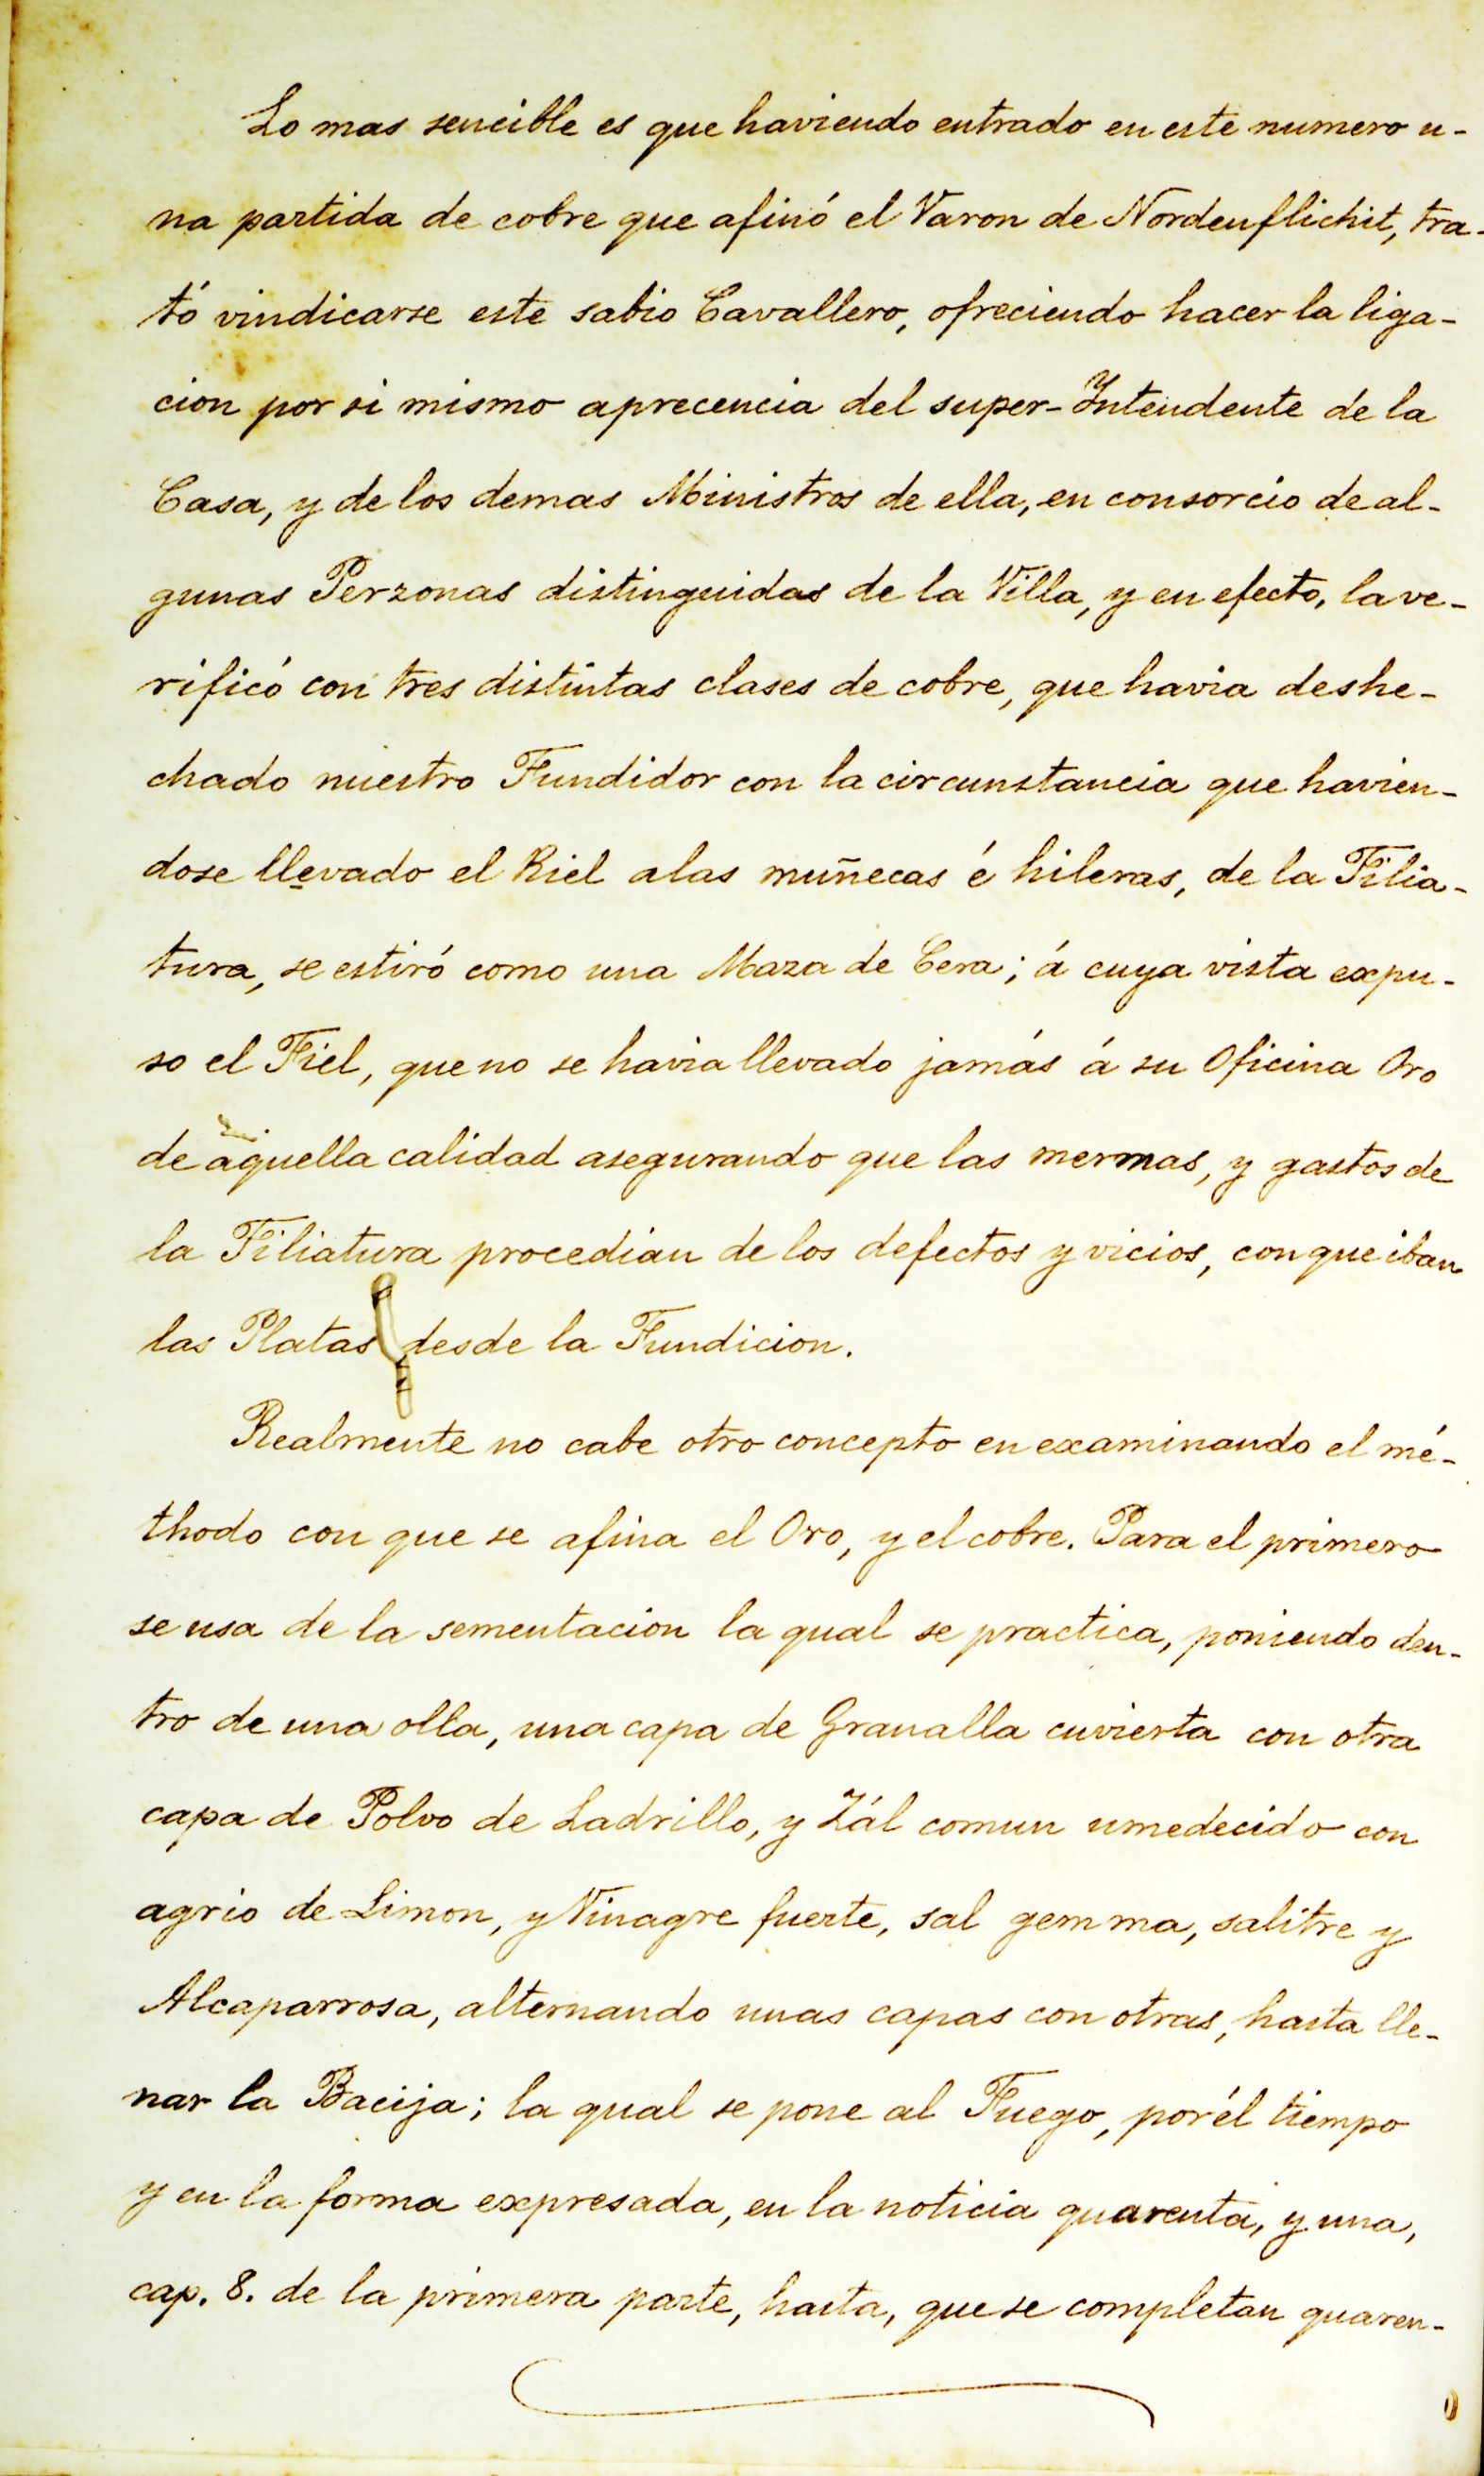 Lo mas sencible es que haviendo entrado en este numero u-
na partida de cobre que afinó el Varon de Nordenflichit, tra-
tó vindicarse este sabio Cavallero, ofreciendo hacer la liga-
cion por si mismo aprecencia del super-Yntendente de la
Casa, y de los demas Ministros de ella, en consorcio de al-
gunas Perzonas distinguidas de la Villa, y en efecto, la ve-
rificó con tres distintas clases de cobre, que havia deshe-
chado nuestro Fundidor con la circunstancia que havien-
dose llevado el Riel alas muñecas é hileras, de la Filia-
tura, se estiró como una Maza de Cera; á cuya vista expu-
so el Fiel, que no se havia llevado jamás á su Oficina Oro
de aquella calidad asegurando que las mermas, y gastos de
la Filiatura procedian de los defectos y vicios, con que iban
las Platas desde la Fundicion.
Realmente no cabe otro concepto en examinando el mé-
thodo con que se afina el Oro, y el cobre. Para el primero
se usa de la sementacion la qual se practica, poniendo den-
tro de una olla, una capa de Granalla cuvierta con otra
capa de Polvo de Ladrillo, y Zál comun umedecido con
agrio de Limon, y Vinagre fuerte, sal gemma, salitre y
Alcaparrosa, alternando unas capas con otras, hasta lle-
nar la Bacija; la qual se pone al Fuego, por él tiempo
y en la forma expresada, en la noticia quarenta, y una,
cap. 8. de la primera parte, hasta, que se completan quaren-